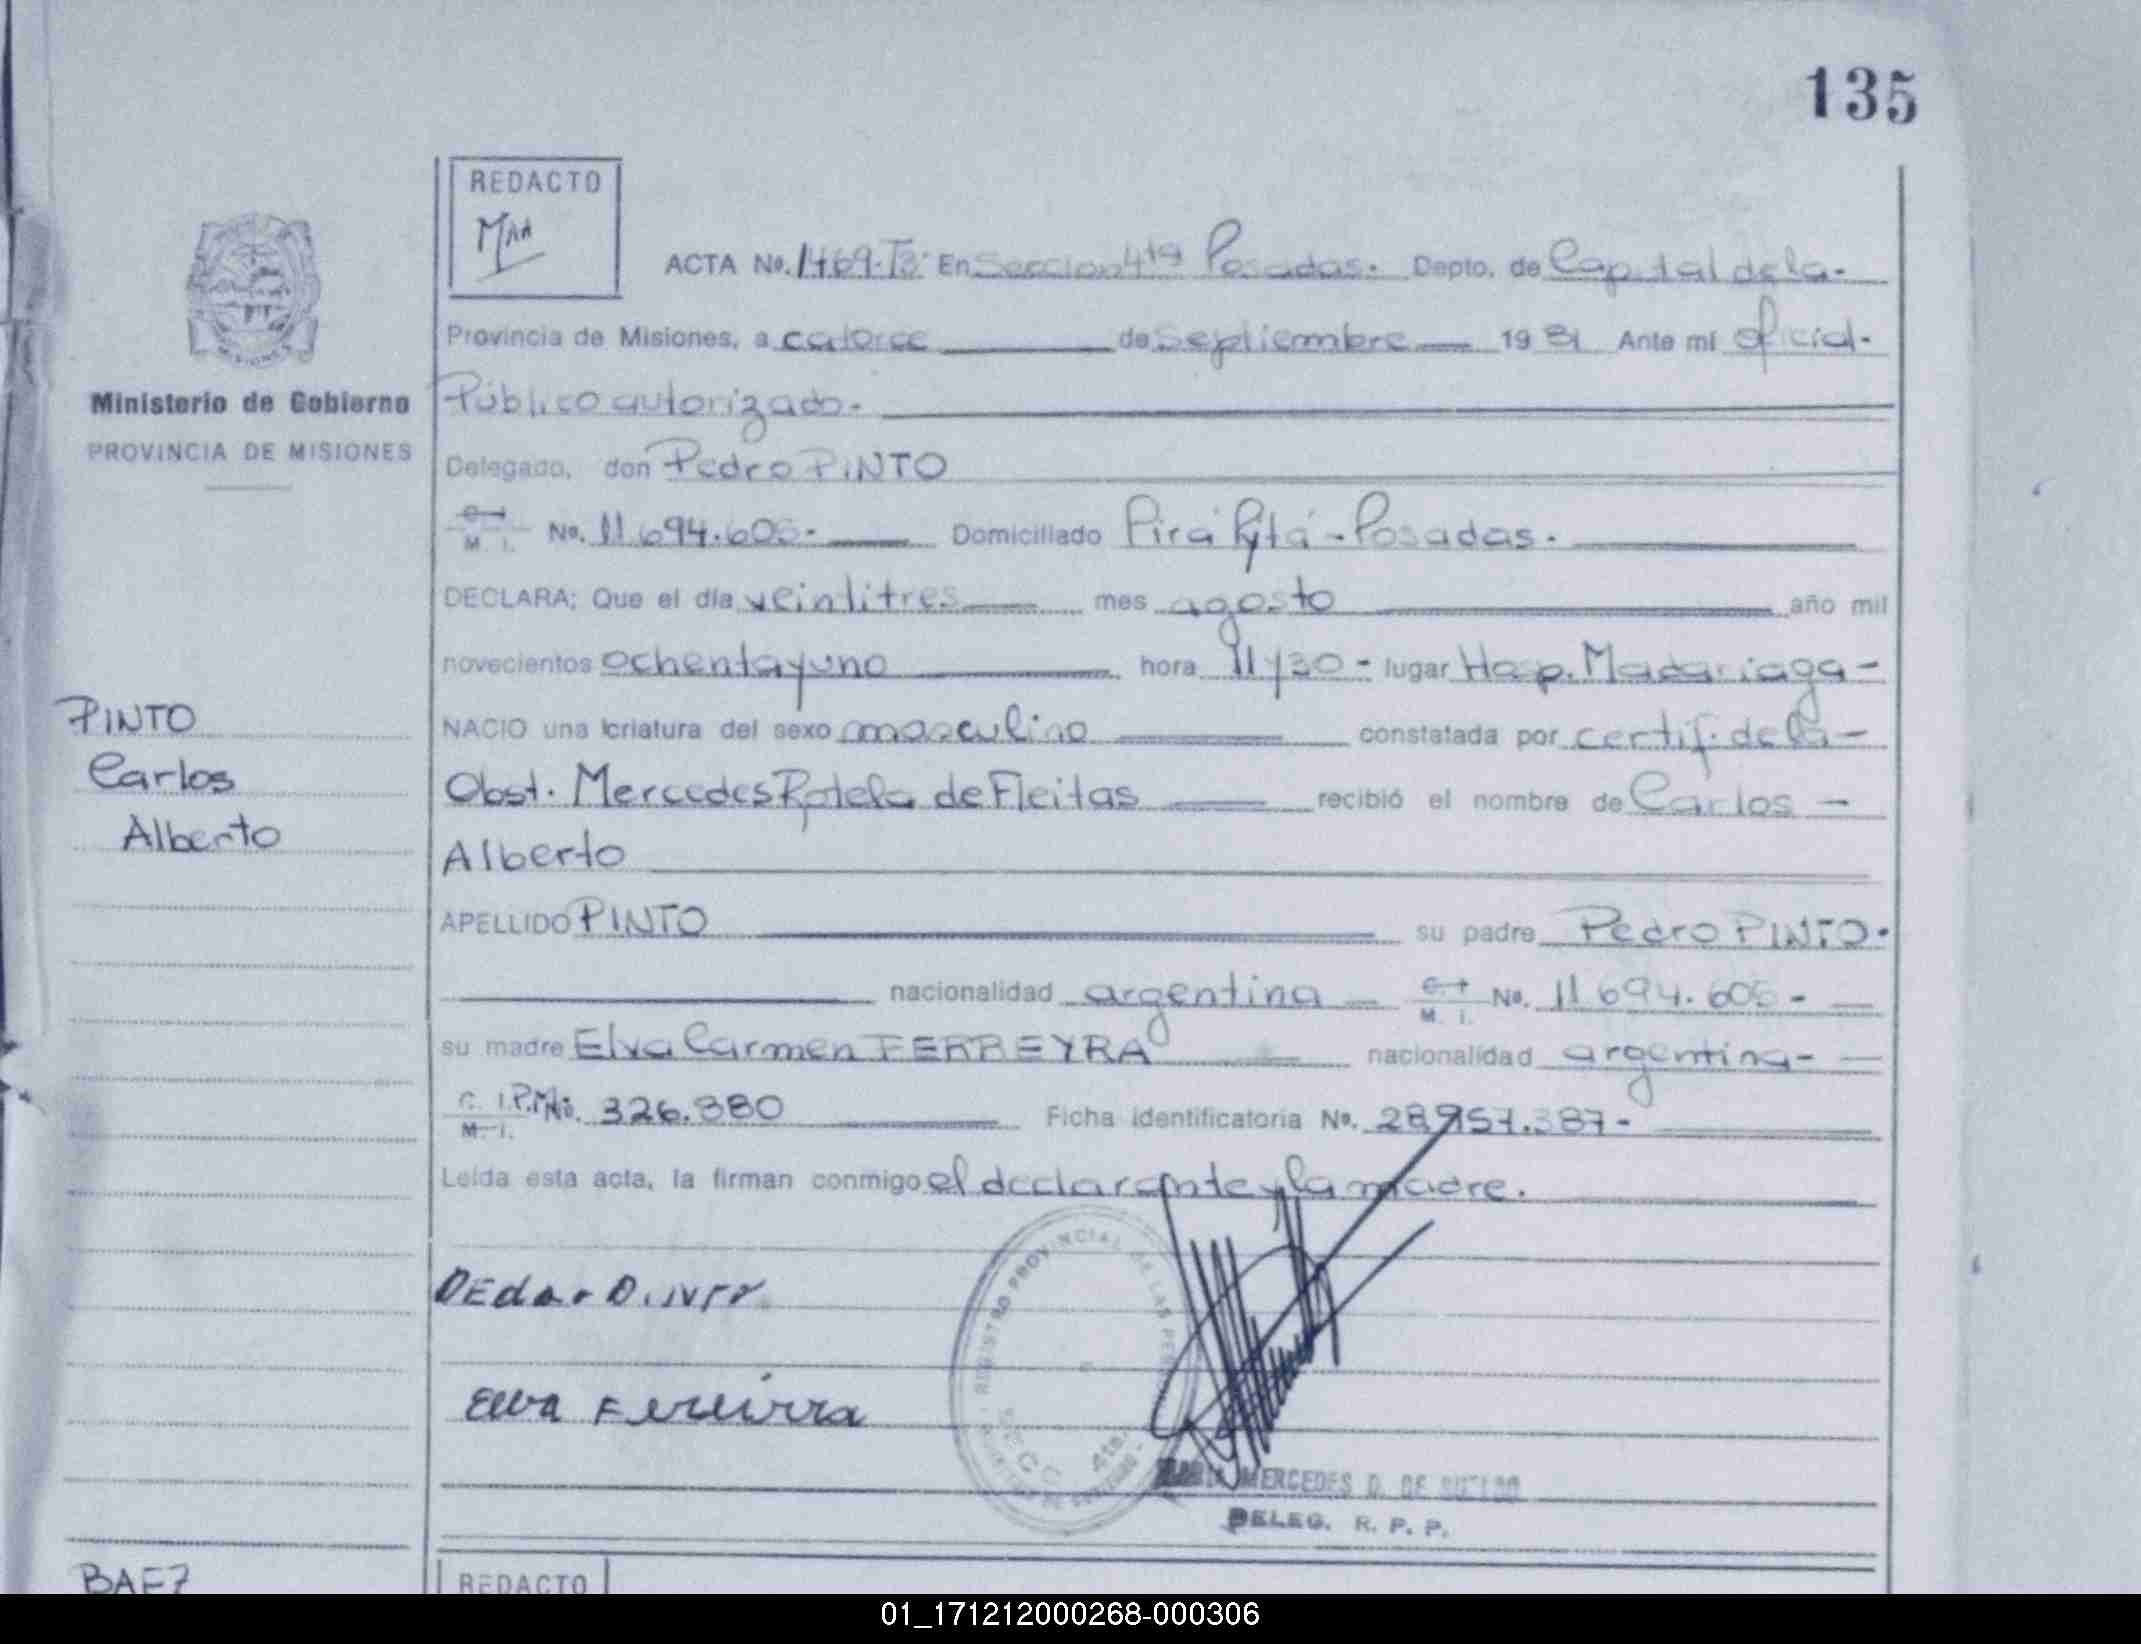 135
REDACTO
ACTA No. 1469-Tº3 En Seccion 4ta Posadas. Depto. de Capital de la-
Provincia de Misiones, a catorce de Septiembre 1981 Ante mí oficial-
Público autorizado.
Ministerio de Gobierno
PROVINCIA DE MISIONES
Delegado, don Pedro PINTO
M. I. No. 11.694.605- Domiciliado Pirá Pytá - Posadas.
DECLARA; Que el día veintitres mes agosto año mil
novecientos ochenta y uno hora 11 y 30 - lugar Hosp. Madariaga-
PINTO
Carlos
Alberto
NACIO una criatura del sexo masculino constatada por certif. de la-
Obst. Mercedes Rotela de Fleitas recibió el nombre de Carlos -
Alberto
APELLIDO PINTO su padre Pedro PINTO.
nacionalidad argentina M. I. No. 11.694.605-
su madre Elva Carmen FERREYRA nacionalidad argentina-
C. I.P.M. No. 326.880 Ficha identificatoria No. 28.957.387-
M. I.
Leída esta acta, la firman conmigo el declarante y la madre.
REGISTRO PROVINCIAL DE LAS
SECC 4ta.
MERCEDES D. DE
DELEG. R. P. P.
BAEZ
REDACTO
01_171212000268-000306